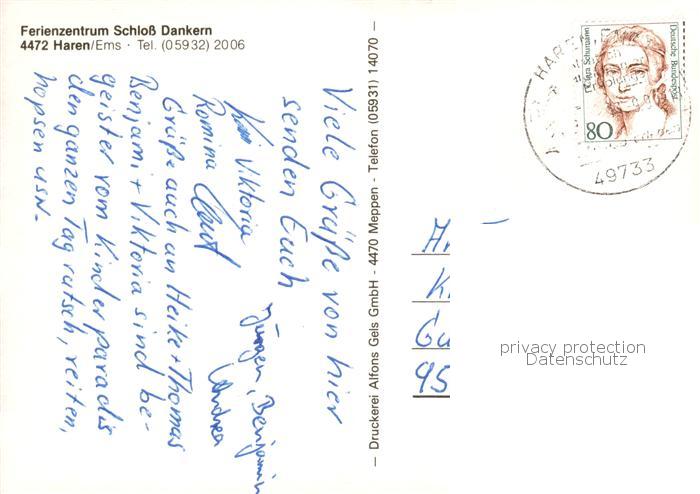 Ferienzentrum Schloß Dankern
4472 Haren/Ems · Tel. (05932) 2006
Viele Grüße von hier
senden Euch
Jürgen, Benjamin
Viktoria
Andrea
Romina
Grüße auch an Heike + Thomas
Benjami + Viktoria sind be-
geister vom Kinderparadis
den ganzen Tag rutsch, reiten,
hopsen usw.
— Druckerei Alfons Gels GmbH - 4470 Meppen - Telefon (05931) 14070 —
Clara Schumann
Deutsche Bundespost
80
HAR
49733
95
privacy protection
Datenschutz